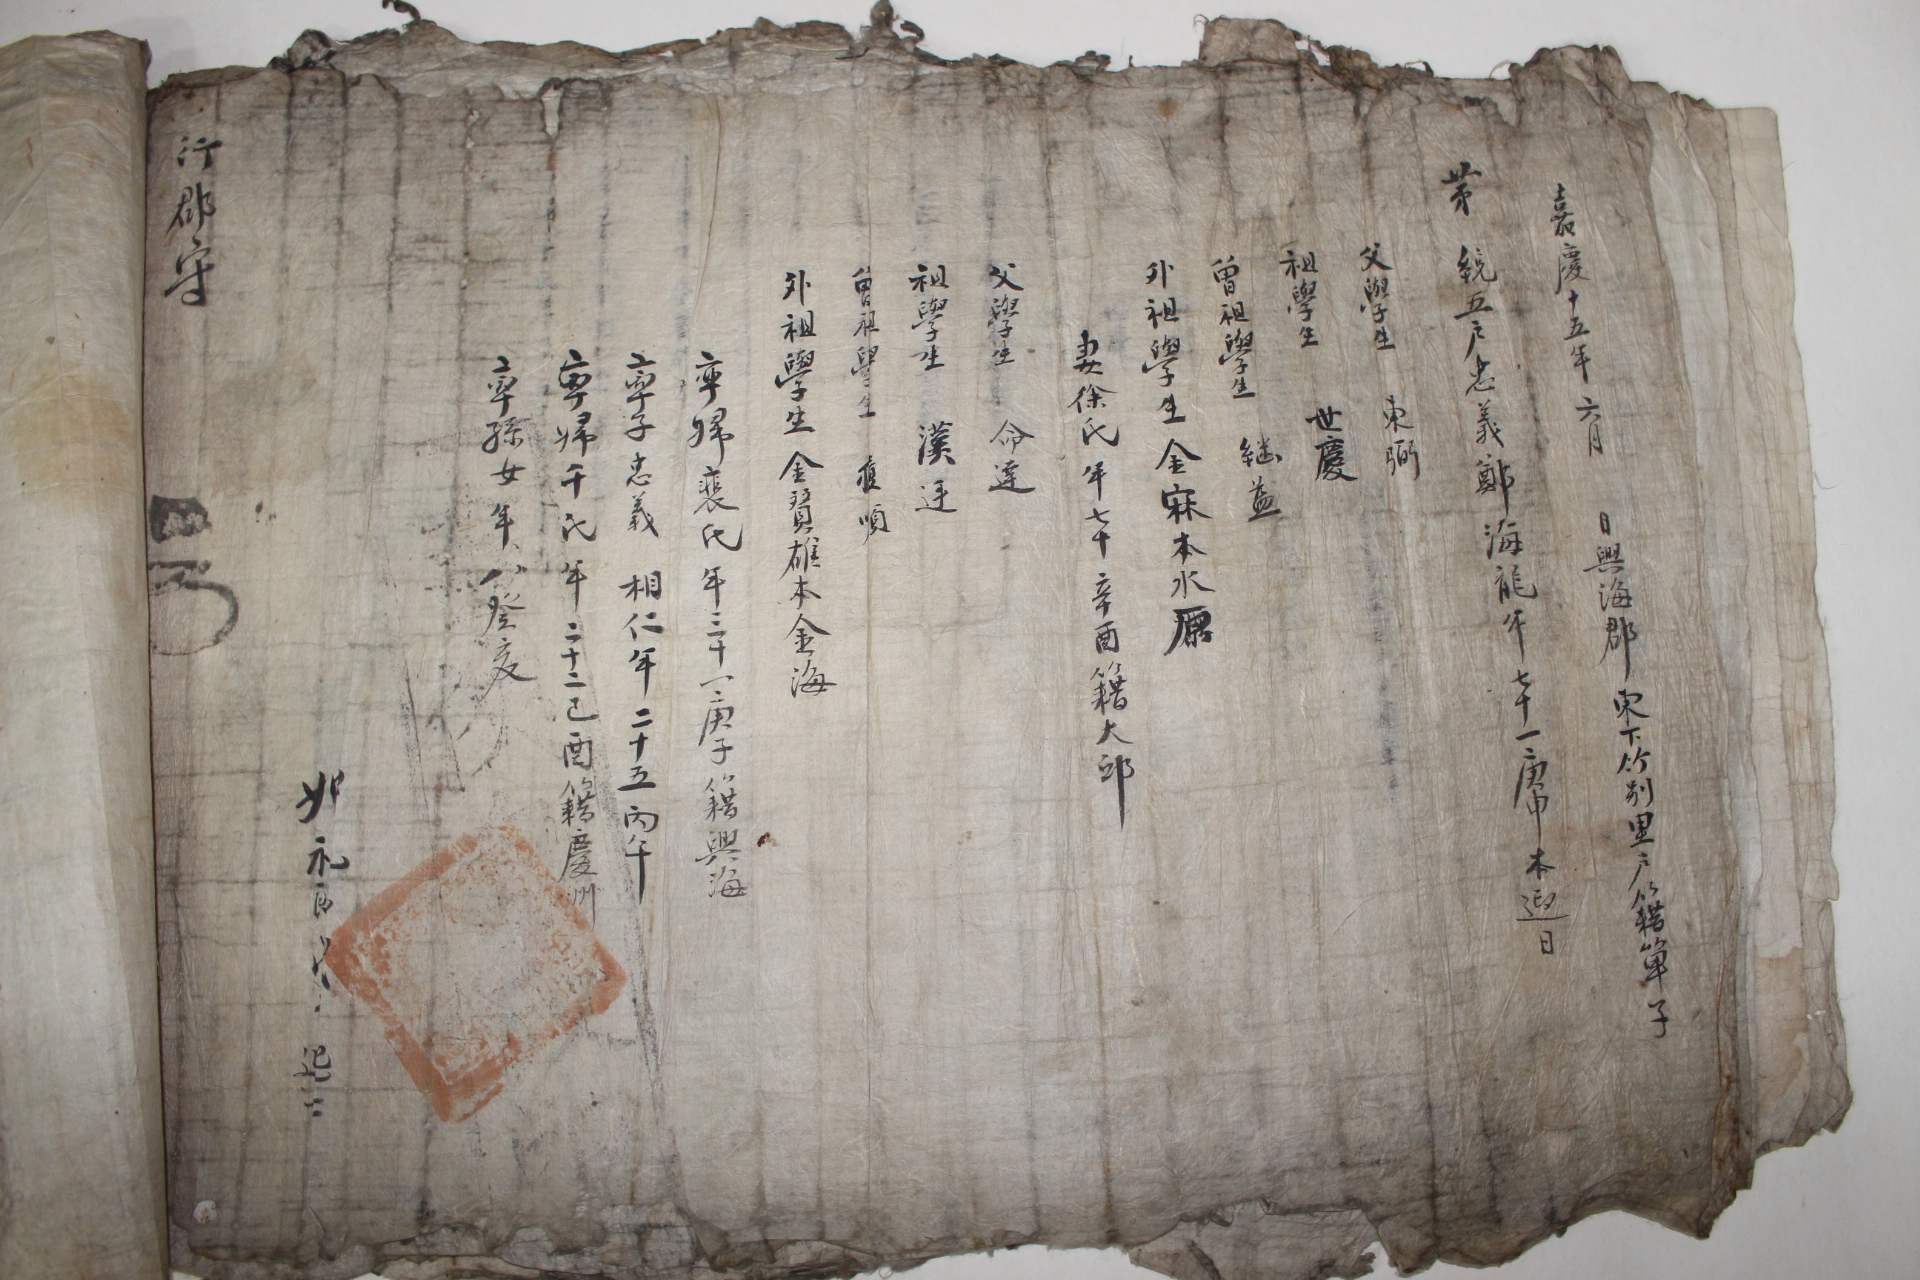 嘉慶十五年 六月 日興海郡東下竹別里戶籍單子
第 統五戶忠義鄭海龍年七十一庚申本迎日
父學生 東弼
祖學生 世慶
曾祖學生 継益
外祖學生金寀本水原
妻徐氏年七十辛酉籍大邱
父學生 命達
祖學生 漢
曾祖學生 順
外祖學生金寶雄本金海
率婦裵氏年三十一庚子籍興海
率子忠義 相仁年二十五丙午
率婦千氏年二十二己酉籍慶州
率孫女年八癸亥
行郡守